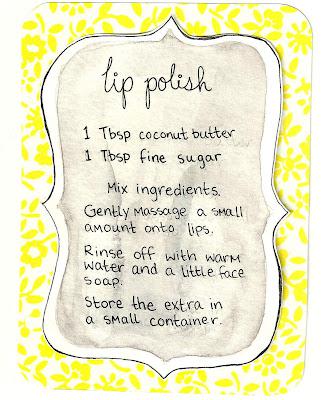 lip polish
1 Tbsp coconut butter
1 Tbsp fine sugar
Mix ingredients.
Gently Massage a small
amount onto lips.
Rinse off with warm
water and a little face
soap.
Store the extra in
a small container.